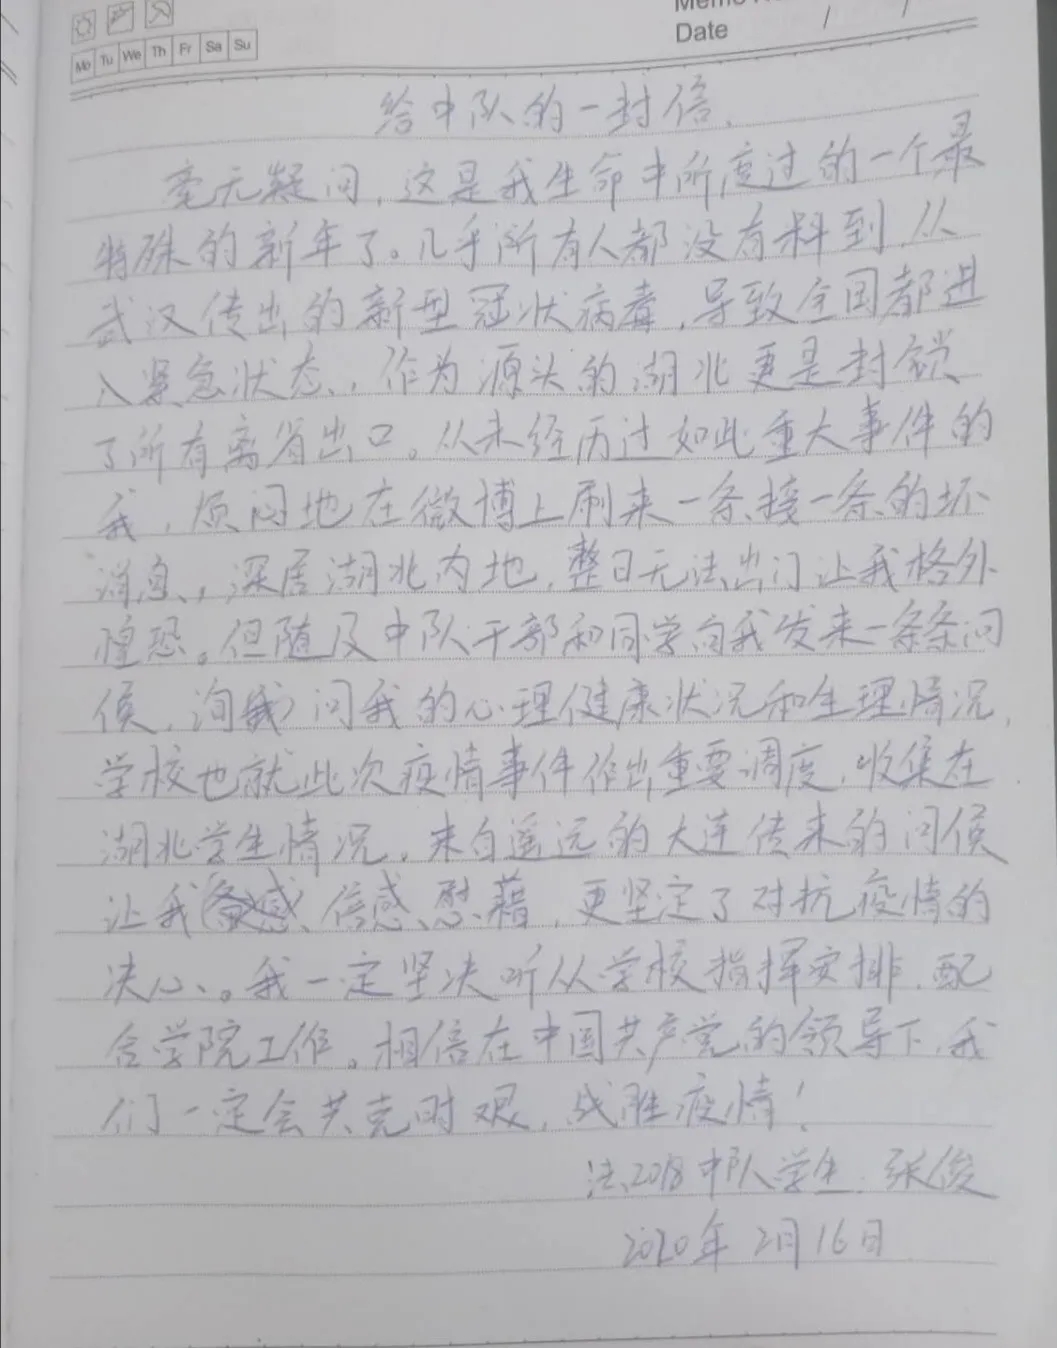 Memo No
Date / /
Mo Tu We Th Fr Sa Su
给中队的一封信.
毫无疑问,这是我生命中所度过的一个最
特殊的新年了。几乎所有人都没有料到,从
武汉传出的新型冠状病毒,导致全国都进
入紧急状态,作为源头的湖北更是封锁
了所有离省出口。从未经历过如此重大事件的
我,烦闷地在微博上刷来一条接一条的坏
消息,深居湖北内地,整日无法出门让我格外
惶恐。但随及中队干部和同学向我发来一条条问
候,询问我的心理健康状况和生理情况,
学校也就此次疫情事件作出重要调度,收集在
湖北学生情况,来自遥远的大连传来的问候
让我倍感慰藉,更坚定了对抗疫情的
决心。我一定坚决听从学校指挥安排,配
合学院工作。相信在中国共产党的领导下,我
们一定会共克时艰,战胜疫情!
法2018中队学生:张俊
2020年2月16日